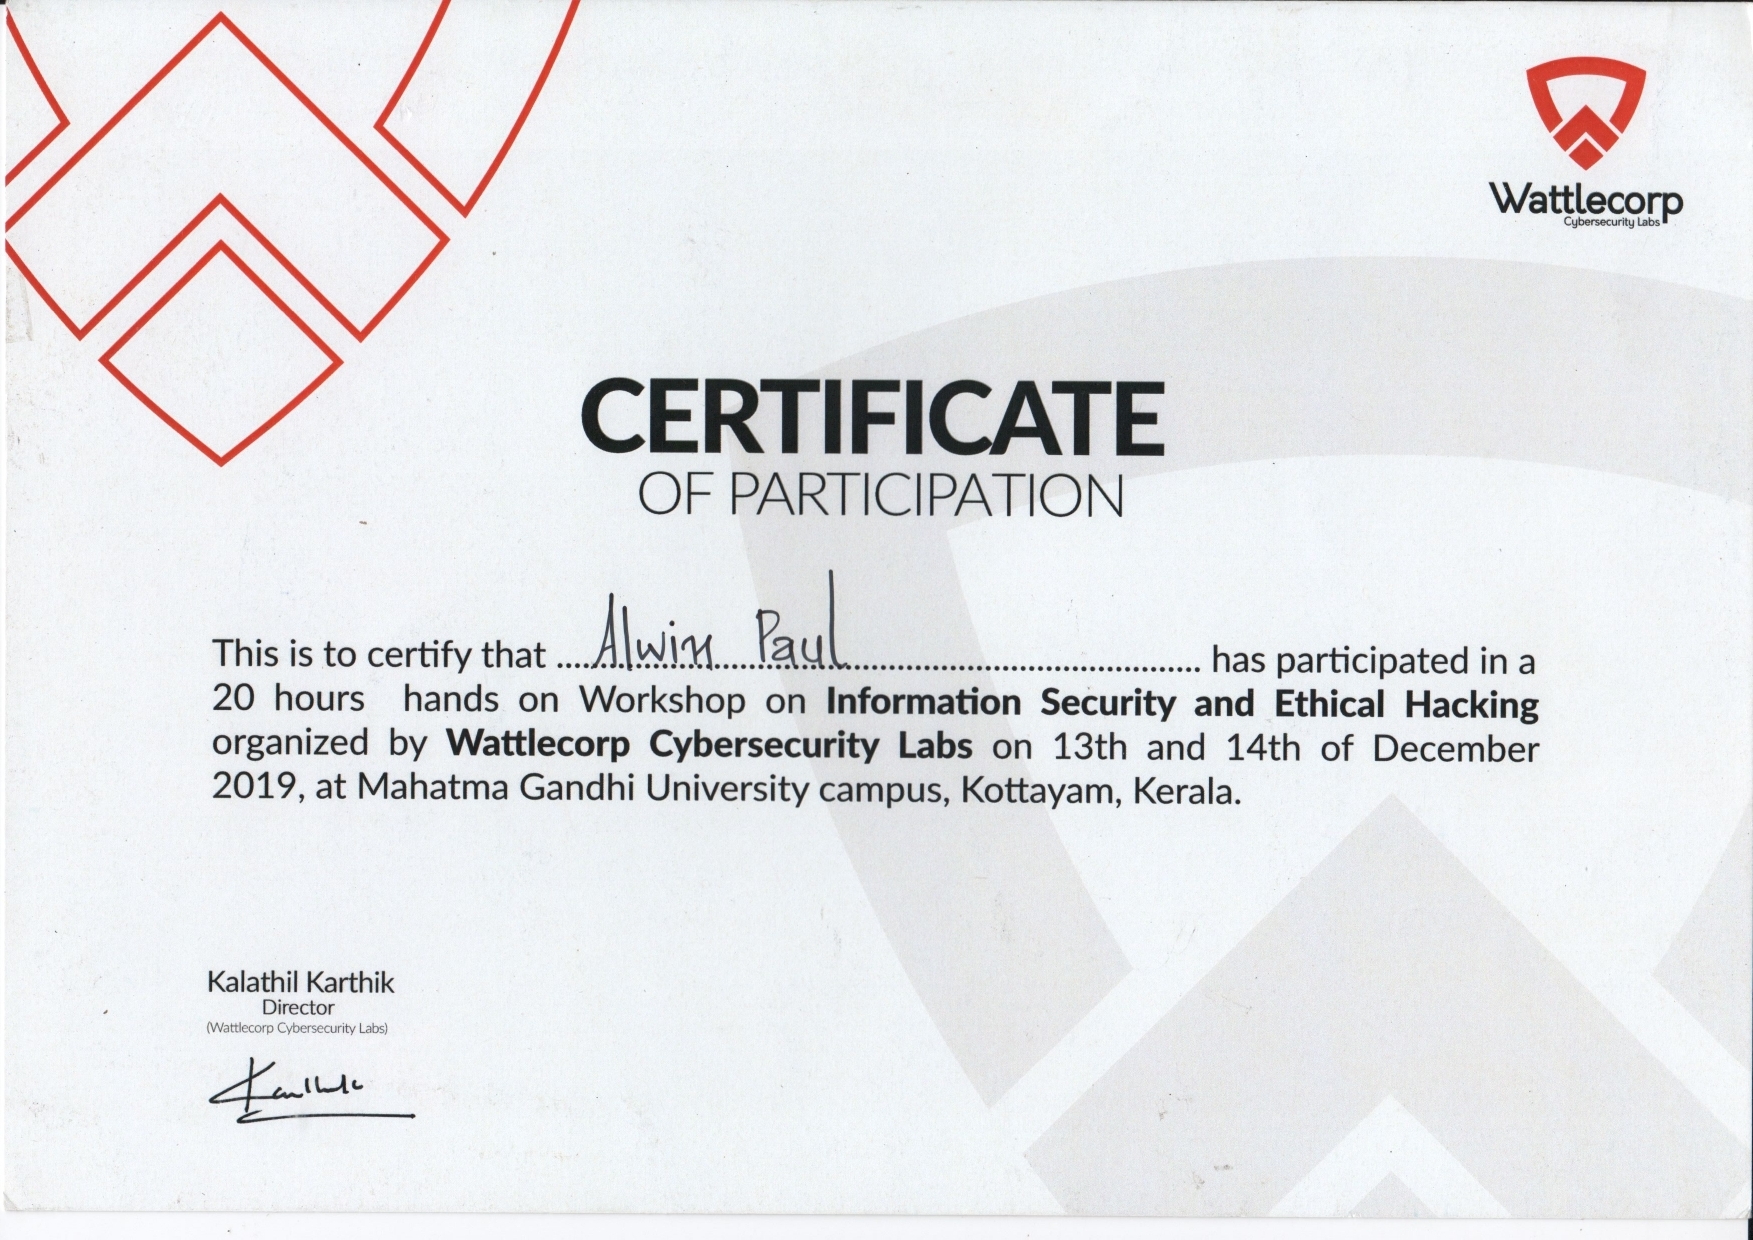 Wattlecorp
Cybersecurity Labs
CERTIFICATE
OF PARTICIPATION
This is to certify that ....Alwin Paul.... has participated in a
20 hours hands on Workshop on Information Security and Ethical Hacking
organized by Wattlecorp Cybersecurity Labs on 13th and 14th of December
2019, at Mahatma Gandhi University campus, Kottayam, Kerala.
Kalathil Karthik
Director
(Wattlecorp Cybersecurity Labs)
Karthik